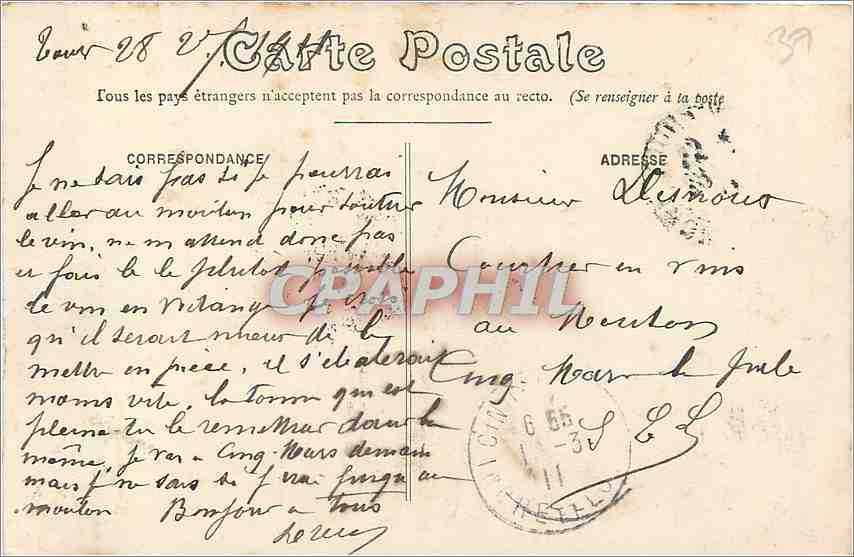 Tours 28 2 1911
39
Carte Postale
Tous les pays étrangers n'acceptent pas la correspondance au recto. (Se renseigner à la poste
CORRESPONDANCE
Je ne sais pas si je pourrai
aller au mouton pour soutirer
le vin, ne m attend donc pas
et fais le le plutot possible
ce vin en vidange je crois
qu'il serait mieux de le
mettre en pièce, il s'
moins vite, la tonne qui est
pleine tu le remettras dans la
même, je vais a Cinq-Mars demain
mais je ne sais si j irai jusqu au
mouton Bonjour a tous
ADRESSE
Monsieur Desnoues
Courtier en vins
au Mouton
Cinq-Mars la Pile
I & L
CINQ
6 55
1 -3
11
CPAPHIL